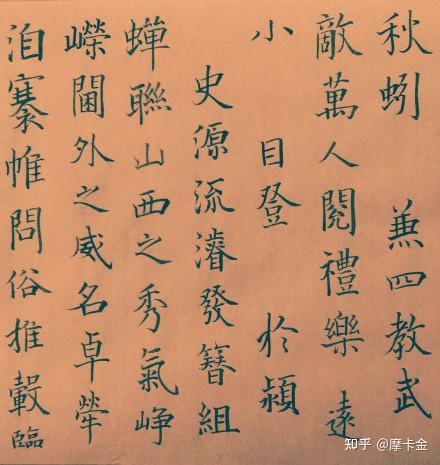 秋蚓 兼四教武
敵萬人閲禮樂 遠
小 目登 於頴
史源流濬發簪組
蟬聯山西之秀氣崢
嶸閫外之威名卓犖
洎褰帷問俗推轂臨
知乎 @摩卡金